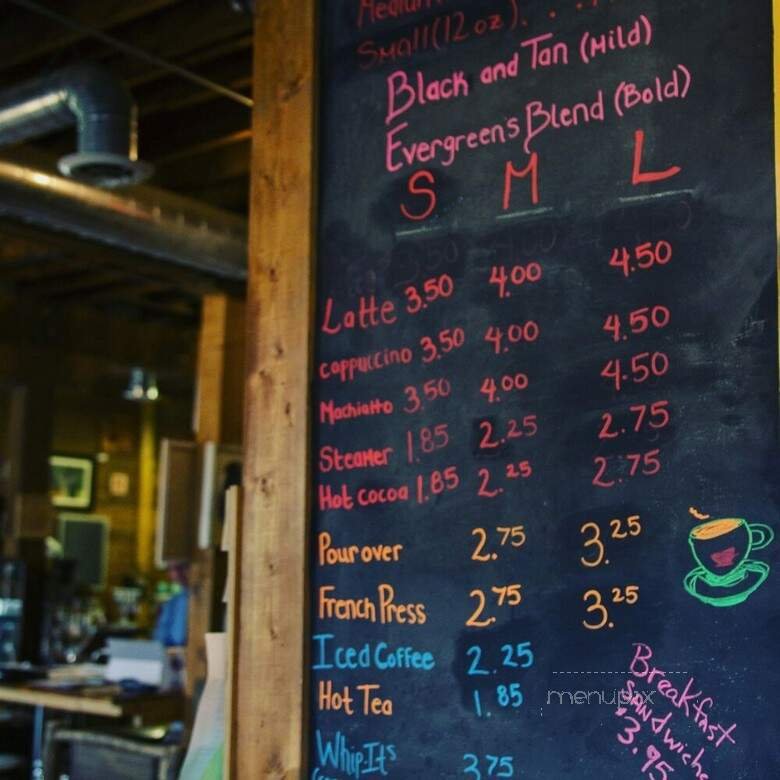 Small (12 oz). . . .
Black and Tan (Mild)
Evergreen's Blend (Bold)
S M L
Latte 3.50 4.00 4.50
cappuccino 3.50 4.00 4.50
Machiatto 3.50 4.00 4.50
Steamer 1.85 2.25 2.75
Hot cocoa 1.85 2.25 2.75
Pour over 2.75 3.25
French Press 2.75 3.25
Iced Coffee 2.25
Hot Tea 1.85
Whip-Its 3.75
Breakfast
Sandwich
3.95
menupix